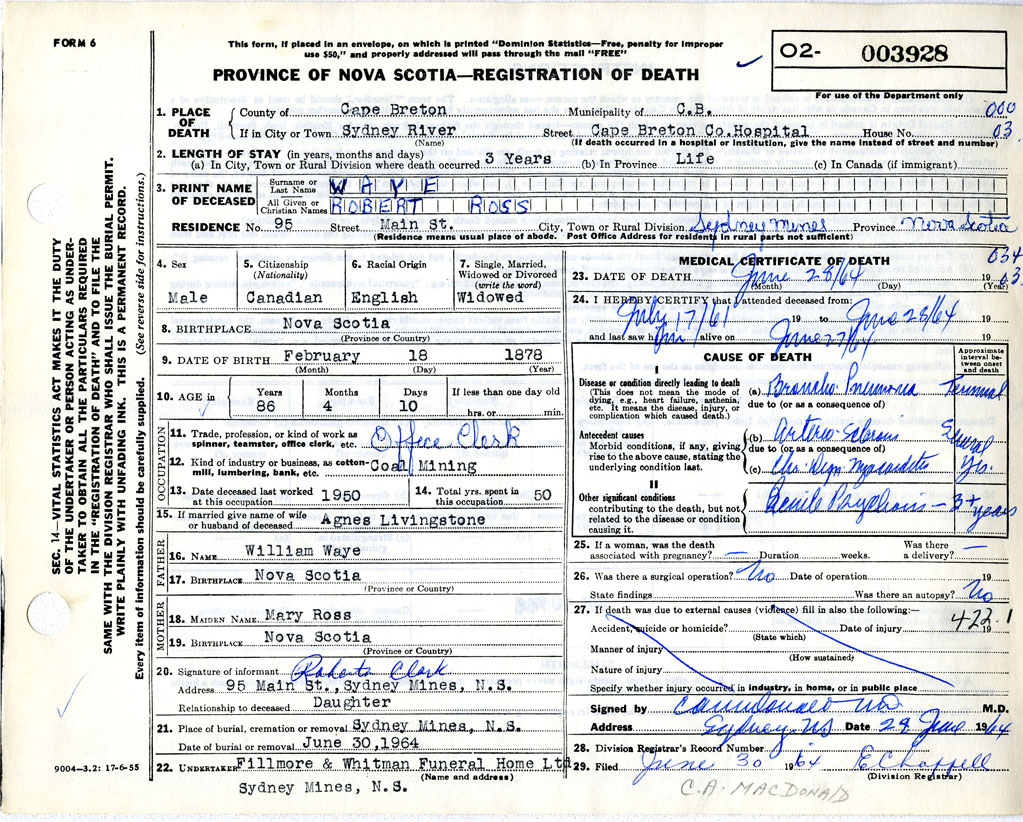 FORM 6
This form, if placed in an envelope, on which is printed "Dominion Statistics—Free, penalty for improper
use $50," and properly addressed will pass through the mail "FREE"
PROVINCE OF NOVA SCOTIA—REGISTRATION OF DEATH
02- 003928
For use of the Department only
SEC. 14—VITAL STATISTICS ACT MAKES IT THE DUTY
OF THE UNDERTAKER OR PERSON ACTING AS UNDER-
TAKER TO OBTAIN ALL THE PARTICULARS REQUIRED
IN THE "REGISTRATION OF DEATH" AND TO FILE THE
SAME WITH THE DIVISION REGISTRAR WHO SHALL ISSUE THE BURIAL PERMIT.
WRITE PLAINLY WITH UNFADING INK. THIS IS A PERMANENT RECORD.
Every item of information should be carefully supplied. (See reverse side for instructions.)
1. PLACE OF DEATH
County of Cape Breton Municipality of C.B. 000
If in City or Town Sydney River Street Cape Breton Co.Hospital House No. 03
(Name) (If death occurred in a hospital or institution, give the name instead of street and number)
2. LENGTH OF STAY (in years, months and days)
(a) In City, Town or Rural Division where death occurred 3 Years (b) In Province Life (c) In Canada (if immigrant)
3. PRINT NAME OF DECEASED
Surname or Last Name WAYE
All Given or Christian Names ROBERT ROSS
RESIDENCE No. 95 Street Main St. City, Town or Rural Division Sydney Mines Province Nova Scotia
(Residence means usual place of abode. Post Office Address for residents in rural parts not sufficient)
4. Sex
Male
5. Citizenship (Nationality)
Canadian
6. Racial Origin
English
7. Single, Married, Widowed or Divorced (write the word)
Widowed
8. BIRTHPLACE Nova Scotia
(Province or Country)
9. DATE OF BIRTH February 18 1878
(Month) (Day) (Year)
10. AGE in Years 86 Months 4 Days 10 If less than one day old hrs. or min.
OCCUPATION
11. Trade, profession, or kind of work as spinner, teamster, office clerk, etc. Office Clerk
12. Kind of industry or business, as cotton-mill, lumbering, bank, etc. Coal Mining
13. Date deceased last worked at this occupation 1950
14. Total yrs. spent in this occupation 50
15. If married give name of wife or husband of deceased Agnes Livingstone
FATHER
16. NAME William Waye
17. BIRTHPLACE Nova Scotia
(Province or Country)
MOTHER
18. MAIDEN NAME Mary Ross
19. BIRTHPLACE Nova Scotia
(Province or Country)
20. Signature of informant Roberta Clark
Address 95 Main St., Sydney Mines, N.S.
Relationship to deceased Daughter
21. Place of burial, cremation or removal Sydney Mines, N.S.
Date of burial or removal June 30,1964
22. UNDERTAKER Fillmore & Whitman Funeral Home Ltd
(Name and address)
Sydney Mines, N.S.
9004—3.2: 17-6-55
MEDICAL CERTIFICATE OF DEATH
034
23. DATE OF DEATH June 28/64 19 03
(Month) (Day) (Year)
24. I HEREBY CERTIFY that I attended deceased from:
July 17/61 19 to June 28/64 19
and last saw him alive on June 27/64 19
CAUSE OF DEATH
Approximate interval between onset and death
I
Disease or condition directly leading to death
(This does not mean the mode of dying, e.g., heart failure, asthenia, etc. It means the disease, injury, or complication which caused death.)
(a) Broncho Pneumonia Terminal
due to (or as a consequence of)
Antecedent causes
Morbid conditions, if any, giving rise to the above cause, stating the underlying condition last.
(b) Arterio Sclerosis Several
due to (or as a consequence of)
(c) Chr. Degn Myocarditis Yrs.
II
Other significant conditions
contributing to the death, but not related to the disease or condition causing it.
Senile Psychosis — 3+ years
25. If a woman, was the death associated with pregnancy? — Duration weeks. Was there a delivery? —
26. Was there a surgical operation? No Date of operation 19
State findings Was there an autopsy? No
27. If death was due to external causes (violence) fill in also the following:—
422.1
Accident, suicide or homicide? Date of injury 19
(State which)
Manner of injury
(How sustained)
Nature of injury
Specify whether injury occurred in industry, in home, or in public place
Signed by M.D.
Address Sydney NS Date 28 June 1964
28. Division Registrar's Record Number
29. Filed June 30 1964 E Chappell
(Division Registrar)
C.A. MACDONALD